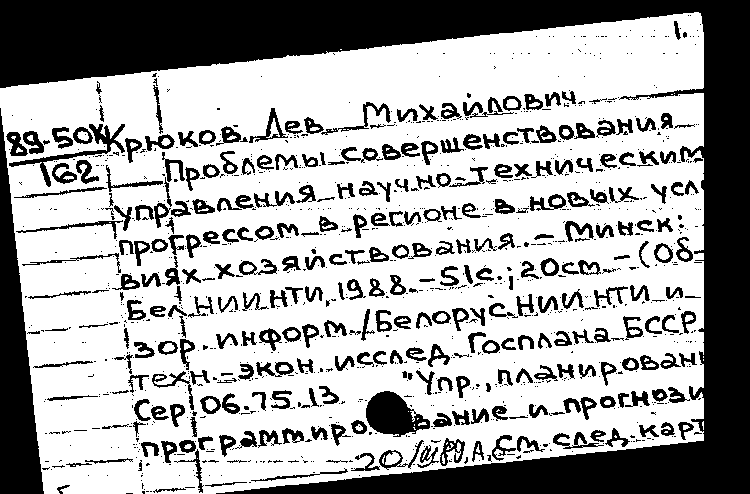 1.
89-50К Крюков, Лев Михайлович
162 Проблемы совершенствования
управления научно-техническим
прогрессом в регионе в новых усло
виях хозяйствования. – Минск:
Бел НИИНТИ, 1988. – 51с.; 20см. – (Об-
зор. информ. / Белорус. НИИ НТИ и
техн.-экон. исслед. Госплана БССР.
Сер. 06.75.13 "Упр., планировани
программиро вание и прогнози
20/III 89, А.С. См. след. карт